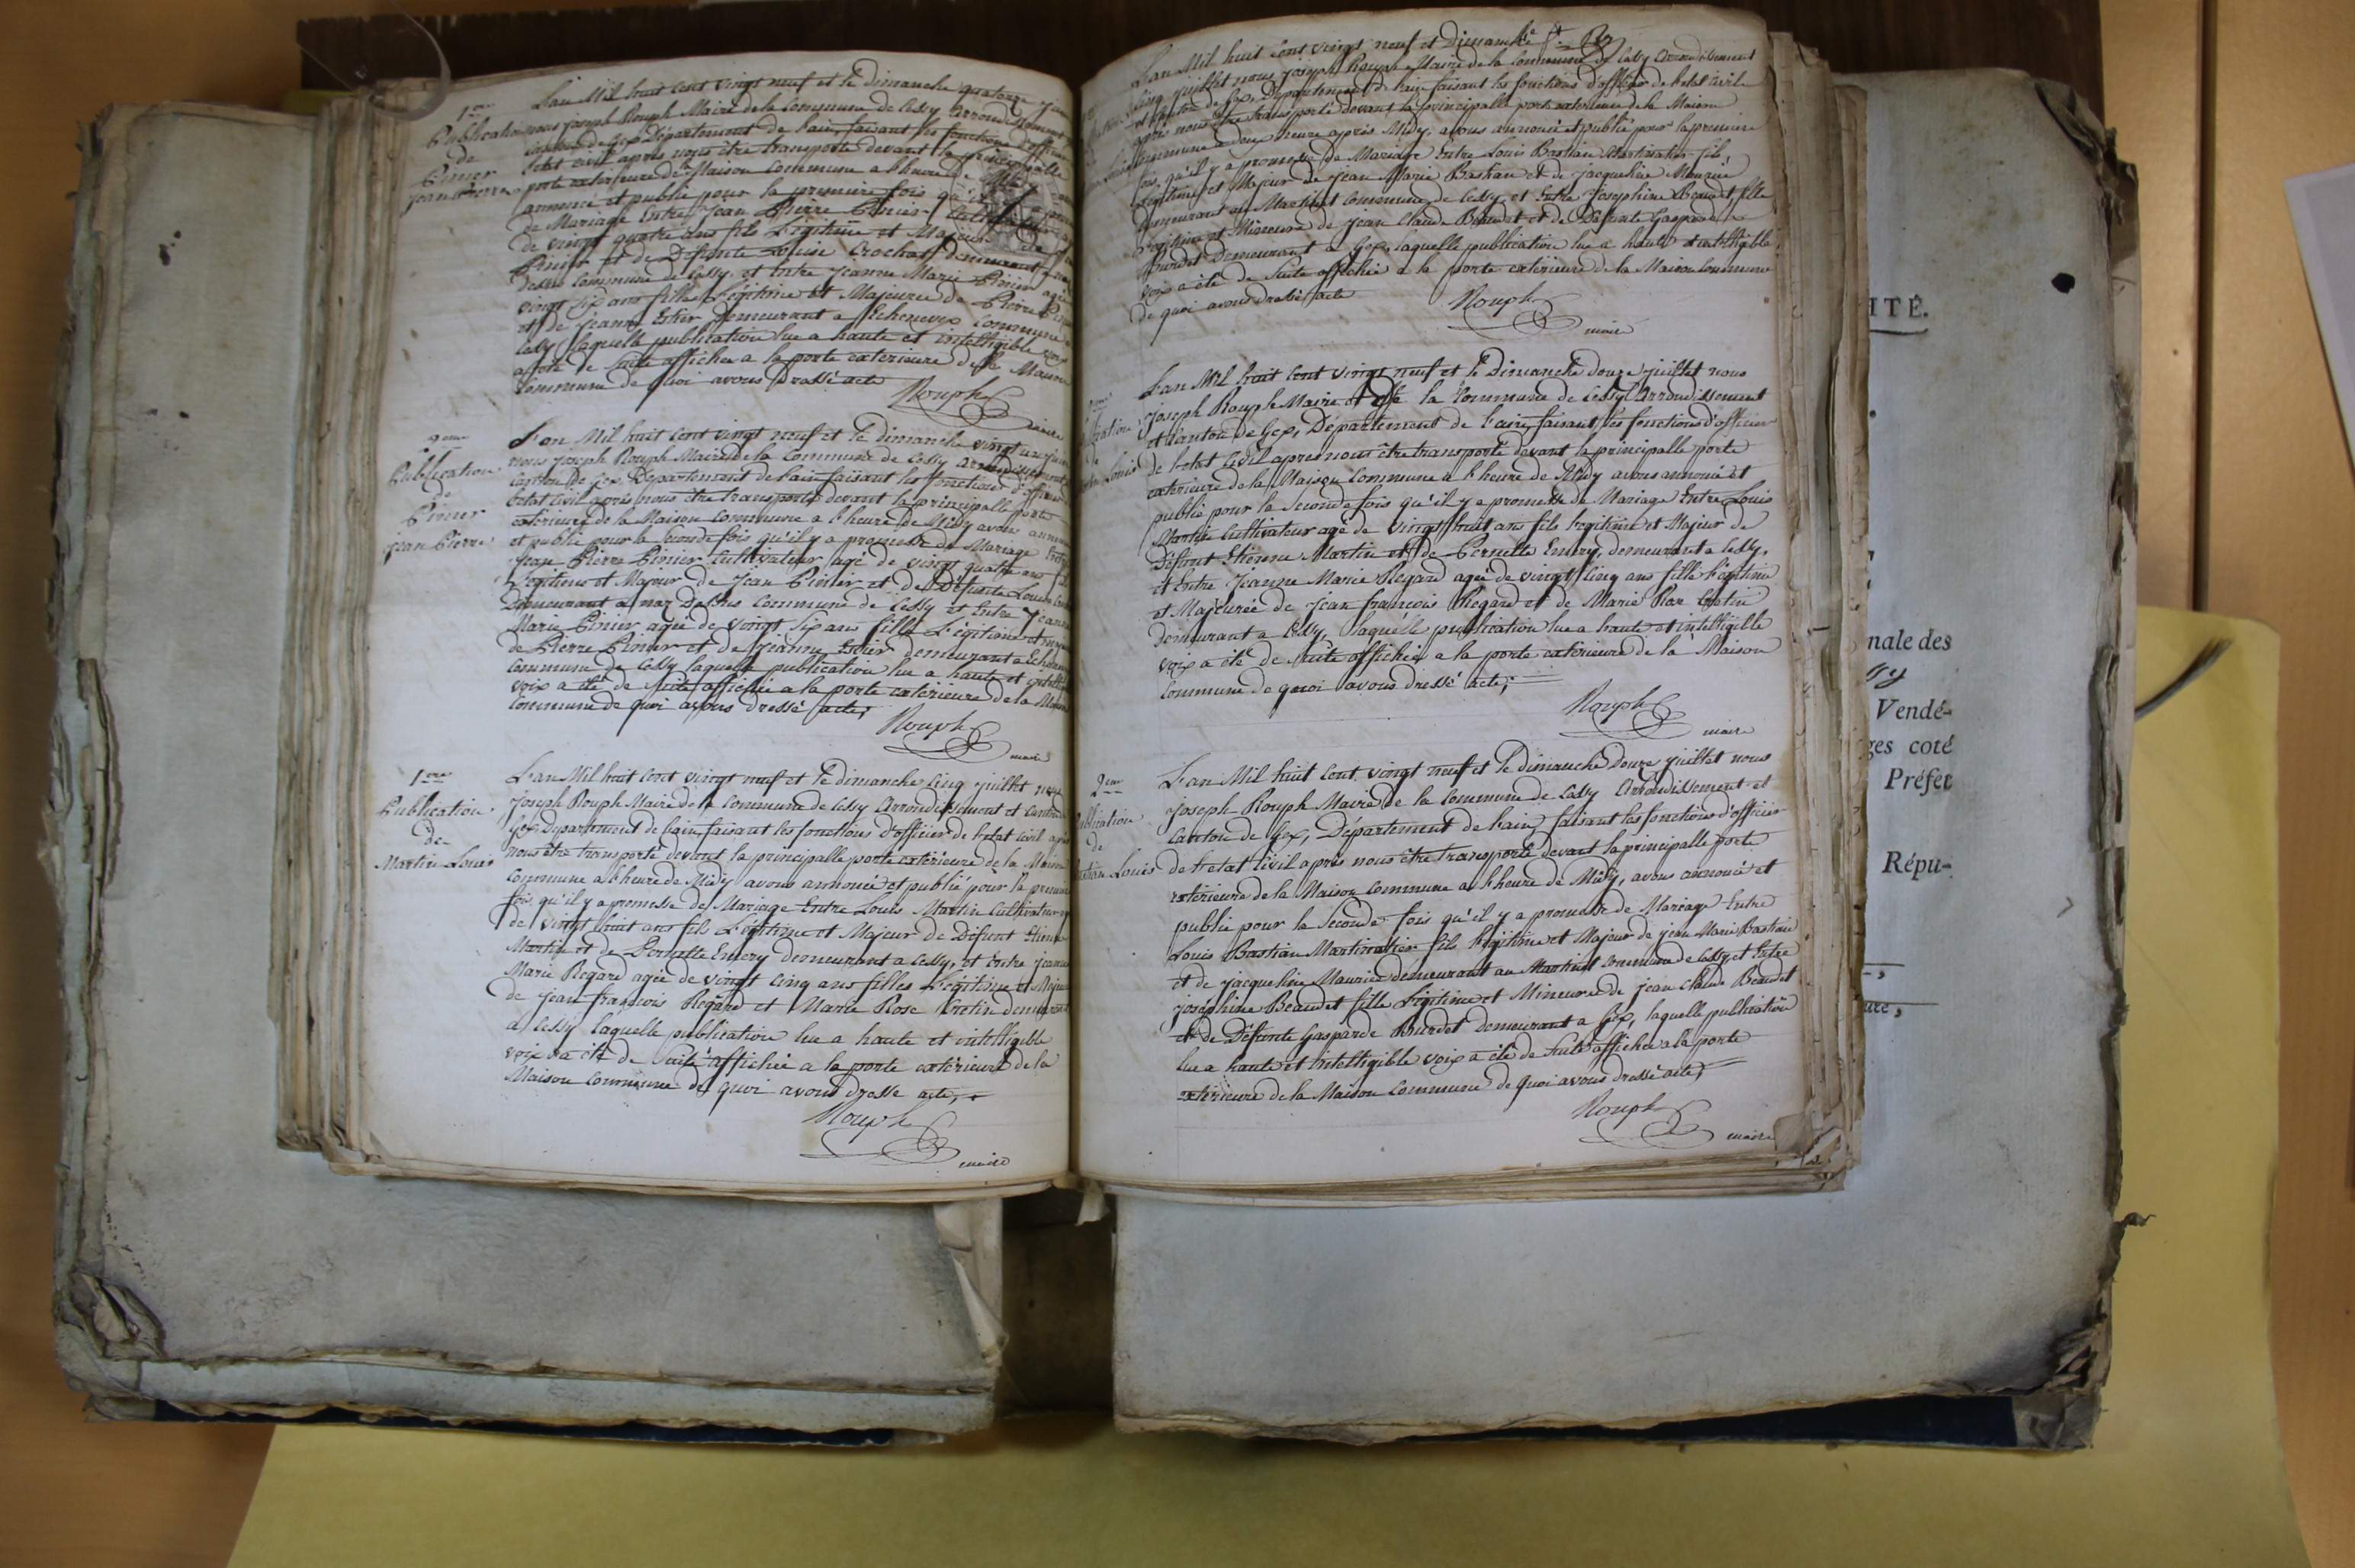 1ere
Publication
de
Pinier
Jean Pierre
L'an Mil huit cent vingt neuf et le dimanche quatorze juin
nous joseph Rouph Maire de la Commune de Cessy arrondissement
canton de Gex Département de l'ain, faisant les fonctions d'officier
l'etat civil après nous être transporté devant la principalle
porte exterieure de la Maison commune a l'heure de Midi
annoncé et publié pour la premiere fois qu'il
de Mariage Entre Jean Pierre Pinier Cultivateur
de vingt quatre ans fils Légitime et Majeur de
Pinier et de Defunte Louise Crochat demeurant
dessus commune de Cessy et Entre jeanne Marie Pinier agée
vingt six ans fille Légitime et Majeure de Pierre
et de jeanne Estier demeurant a Echenevex Commune
Cessy laquelle publication lue a haute et intelligible voix
a été de suite affichée a la porte exterieure de la Maison
Commune de quoi avons dressé acte
Rouph
maire
2eme
Publication
de
Pinier
jean Pierre
L'an Mil huit cent vingt neuf et le dimanche vingt un juin
nous joseph Rouph Maire de la Commune de Cessy arrondissement
canton de Gex Département de l'ain faisant les fonctions d'officier
l'etat civil après nous être transporté devant la principalle porte
exterieure de la Maison commune a l'heure de Midy avons annoncé
et publié pour la seconde fois qu'il y a promesse de Mariage Entre
Jean Pierre Pinier Cultivateur agé de vingt quatre ans
Légitime et Majeur de jean Pinier et de Défunte Louise
Demeurant a naz Dessus commune de Cessy et Entre Jeanne
Marie Pinier agée de vingt six ans fille Légitime et
de Pierre Pinier et de jeanne Estier demeurant a
Commune de Cessy laquelle publication lue a haute et
voix a été de suite affichée a la porte extérieure de la Maison
commune de quoi avons dressé acte,
Rouph
maire
1ere
Publication
de
Martin Louis
L'an Mil huit cent vingt neuf et le dimanche cinq juillet nous
joseph Rouph Maire de la commune de Cessy arrondissement et canton
Gex Département de l'ain, faisant les fonctions d'officier de l'etat civil après
nous être transporté devant la principalle porte extérieure de la Maison
Commune a l'heure de Midy avons annoncé et publié pour la premiere
fois qu'il y a promesse de Mariage Entre Louis Martin Cultivateur
de vingt huit ans fils Légitime et Majeur de Défunt Etienne
Martin et de Pernette Emery demeurant a Cessy, et Entre jeanne
Marie Regard agée de vingt cinq ans filles Légitime et
de jean françois Regard et Marie Rose Cretin demeurant
a Cessy laquelle publication lue a haute et intelligible
voix a été de suite affichée a la porte extérieure de la
Maison commune de quoi avons dressé acte,
Rouph
maire
L'an Mil huit Cent vingt neuf et Dimanche
Cinq juillet nous joseph Rouph Maire de la commune de Cessy Arrondissement
et canton de Gex, Département de l'ain faisant les fonctions d'officier de l'etat Civil
après nous être transporté devant la principalle porte exterieure de la Maison
Commune a deux heure après Midy, avons annoncé et publié pour la premiere
fois, qu'il y a promesse de Mariage Entre Louis Bastian Martinatier fils
Légitime et Majeur de jean Marie Bastian et de jacqueline Maurice
demeurant au Martinet Commune de Cessy et Entre Josephine Beaudet fille
Légitime et Mineure de jean Claude Beaudet et de Défunte Gasparde
Burdet Demeurant a Gex, laquelle publication lue a haute et intelligible
voix a été de suite affichée a la porte extérieure de la Maison Commune
de quoi avons dressé acte
Rouph
maire
Louis
L'an Mil huit cent vingt neuf et le Dimanche douze juillet nous
joseph Rouph Maire de la Commune de Cessy Arrondissement
et Canton de Gex, Département de l'ain faisant les fonctions d'officier
de l'etat Civil apres nous être transporté devant la principalle porte
exterieure de la Maison Commune a l'heure de Midy avons annoncé et
publié pour la seconde fois qu'il y a promesse de Mariage Entre Louis
Martin Cultivateur agé de vingt huit ans fils legitime et Majeur de
Défunt Etienne Martin et de Pernette Emery, demeurant a Cessy,
et Entre Jeanne Marie Regard agée de vingt cinq ans fille Légitime
et Majeurée de jean françois Regard et de Marie Rose Cretin
demeurant a Cessy, laquelle publication lue a haute et intelligible
voix a été de suite affichée a la porte exterieure de la Maison
Commune de quoi avons dressé acte,
Rouph
maire
2eme
de
Louis
L'an Mil huit Cent vingt neuf et le dimanche douze juillet nous
joseph Rouph Maire de la Commune de Cessy Arrondissement et
Canton de Gex, Département de l'ain, faisant les fonctions d'officier
de l'etat Civil après nous être transporté devant la principalle porte
extérieure de la Maison Commune a l'heure de Midy, avons annoncé et
publié pour la Seconde fois qu'il y a promesse de Mariage Entre
Louis Bastian Martinatier fils légitime et Majeur de jean Marie Bastian
et de jacqueline Maurice demeurant au Martinet commune de Cessy et Entre
joséphine Beaudet fille Légitime et Mineure de jean Claude Beaudet
et de Défunte Gasparde Burdet demeurant a Gex, laquelle publication
lue a haute et intelligible voix a été de suite affichée a la porte
extérieure de la Maison Commune de quoi avons dressé acte,
Rouph
maire
ITÉ.
nale des
Vendé-
ges coté
Préfet
Répu-